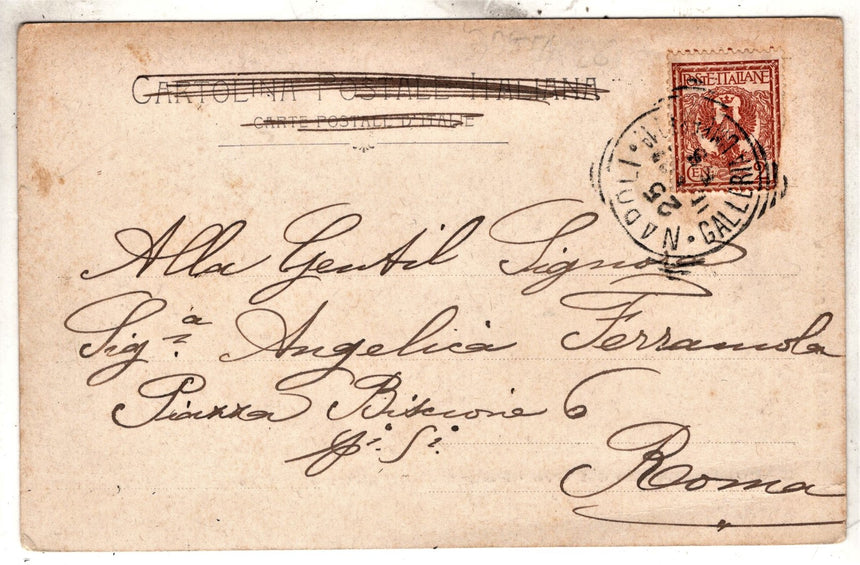 CARTOLINA POSTALE ITALIANA
CARTE POSTALE D'ITALIE
POSTE·ITALIANE
CEN. 2
NAPOLI · GALLERIA
25
Alla Gentil Signo
Sig.a Angelica Ferramola
Piazza Biscione 6
Roma